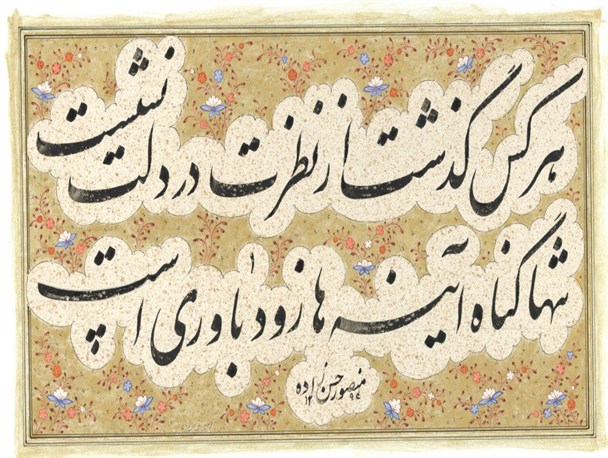 هر کس گذشت از نظرت در دلت نشست
تنها گناه آینه ها زود باوری است
منصور حسن زاده